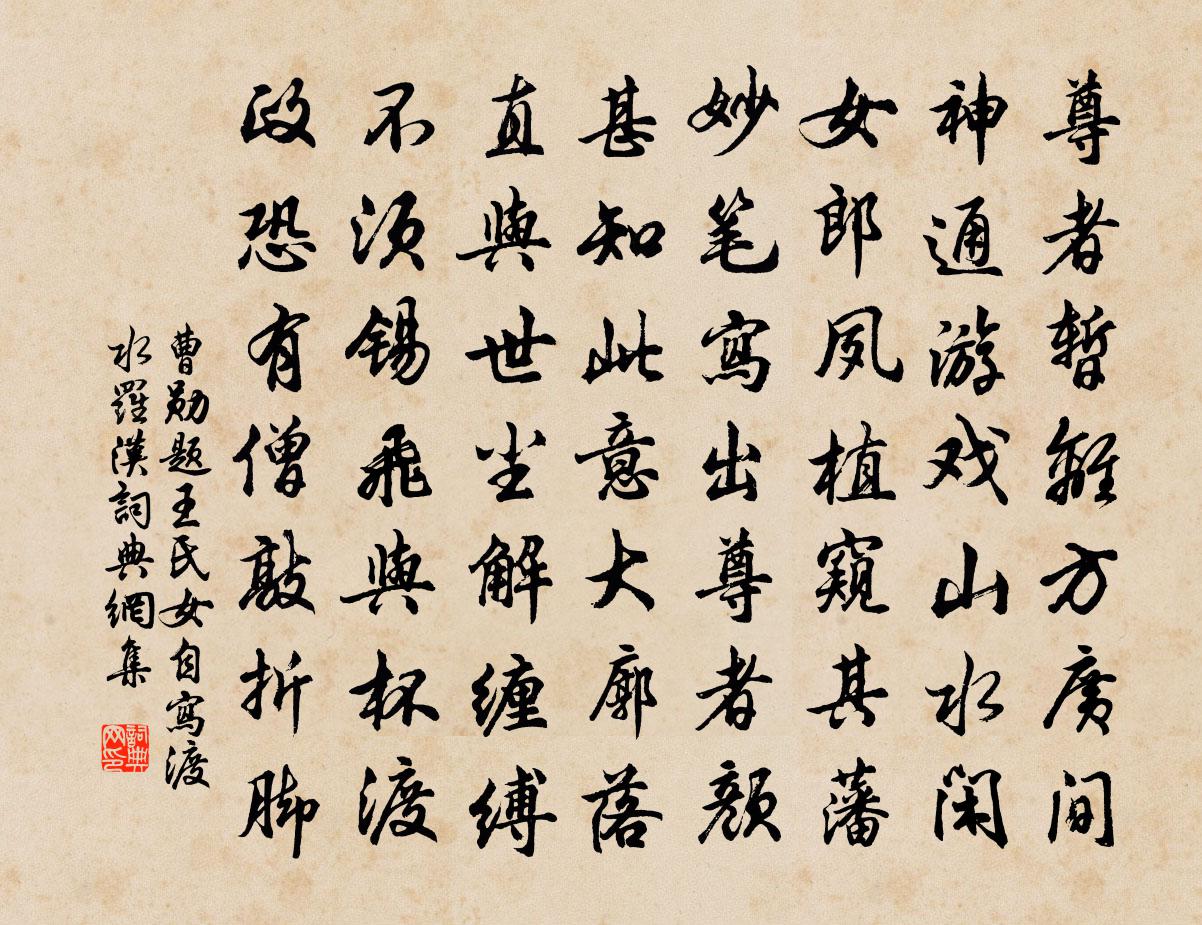 尊者暂離方廣间
神通游戏山水闲
女郎夙植窥其藩
妙笔寫出尊者颜
甚知此意大廓落
直與世尘解缠缚
不须锡飛與杯渡
政恐有僧敲折脚
曹勋题王氏女自寫渡
水羅漢詞典網集
詞典
网印